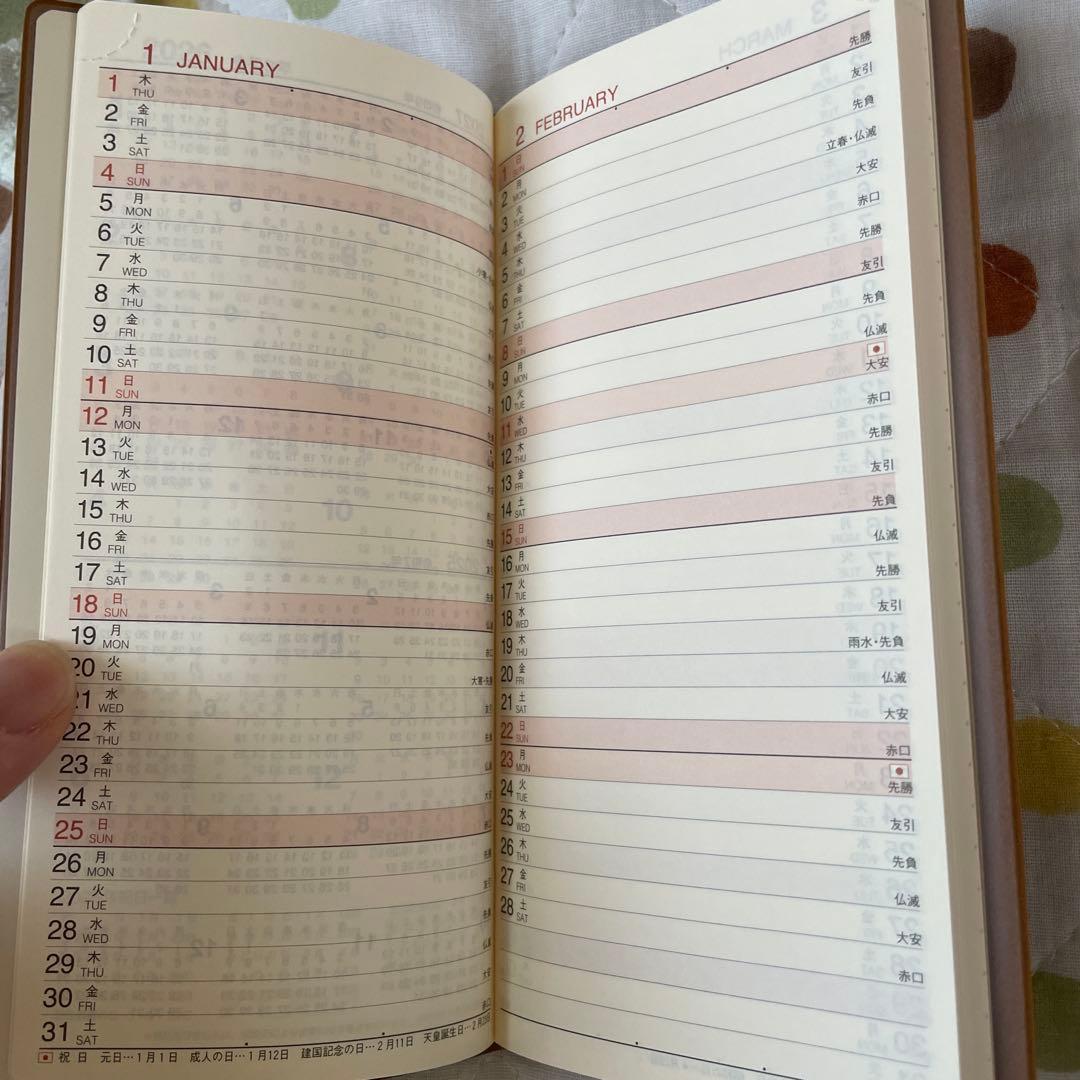 1 JANUARY
1 木 THU
2 金 FRI
3 土 SAT
4 日 SUN
5 月 MON
6 火 TUE
7 水 WED
8 木 THU
9 金 FRI
10 土 SAT
11 日 SUN
12 月 MON
13 火 TUE
14 水 WED
15 木 THU
16 金 FRI
17 土 SAT
18 日 SUN
19 月 MON
20 火 TUE 大寒・先勝
21 水 WED
22 木 THU
23 金 FRI
24 土 SAT
25 日 SUN
26 月 MON
27 火 TUE
28 水 WED
29 木 THU
30 金 FRI
31 土 SAT
祝 日 元日…1月1日 成人の日…1月12日 建国記念の日…2月11日 天皇誕生日…2月23日
2 FEBRUARY
1 日 SUN 先勝
2 月 MON 友引
3 火 TUE 先負
4 水 WED 立春・仏滅
5 木 THU 大安
6 金 FRI 赤口
7 土 SAT 先勝
8 日 SUN 友引
9 月 MON 先負
10 火 TUE 仏滅
11 水 WED 大安
12 木 THU 赤口
13 金 FRI 先勝
14 土 SAT 友引
15 日 SUN 先負
16 月 MON 仏滅
17 火 TUE 先勝
18 水 WED 友引
19 木 THU 雨水・先負
20 金 FRI 仏滅
21 土 SAT 大安
22 日 SUN 赤口
23 月 MON 先勝
24 火 TUE 友引
25 水 WED 先負
26 木 THU 仏滅
27 金 FRI 大安
28 土 SAT 赤口